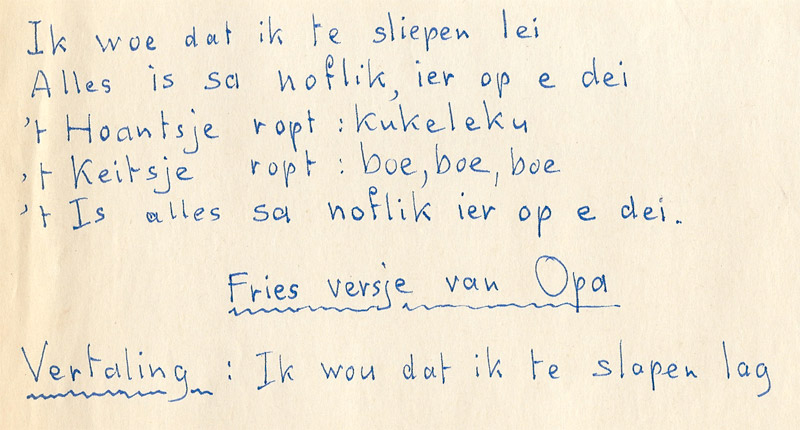 Ik woe dat ik te sliepen lei
Alles is sa noflik, ier op e dei
't Hoantsje ropt : kukeleku
't Keitsje ropt : boe, boe, boe
't Is alles sa noflik ier op e dei.
Fries versje van Opa
Vertaling : Ik wou dat ik te slapen lag